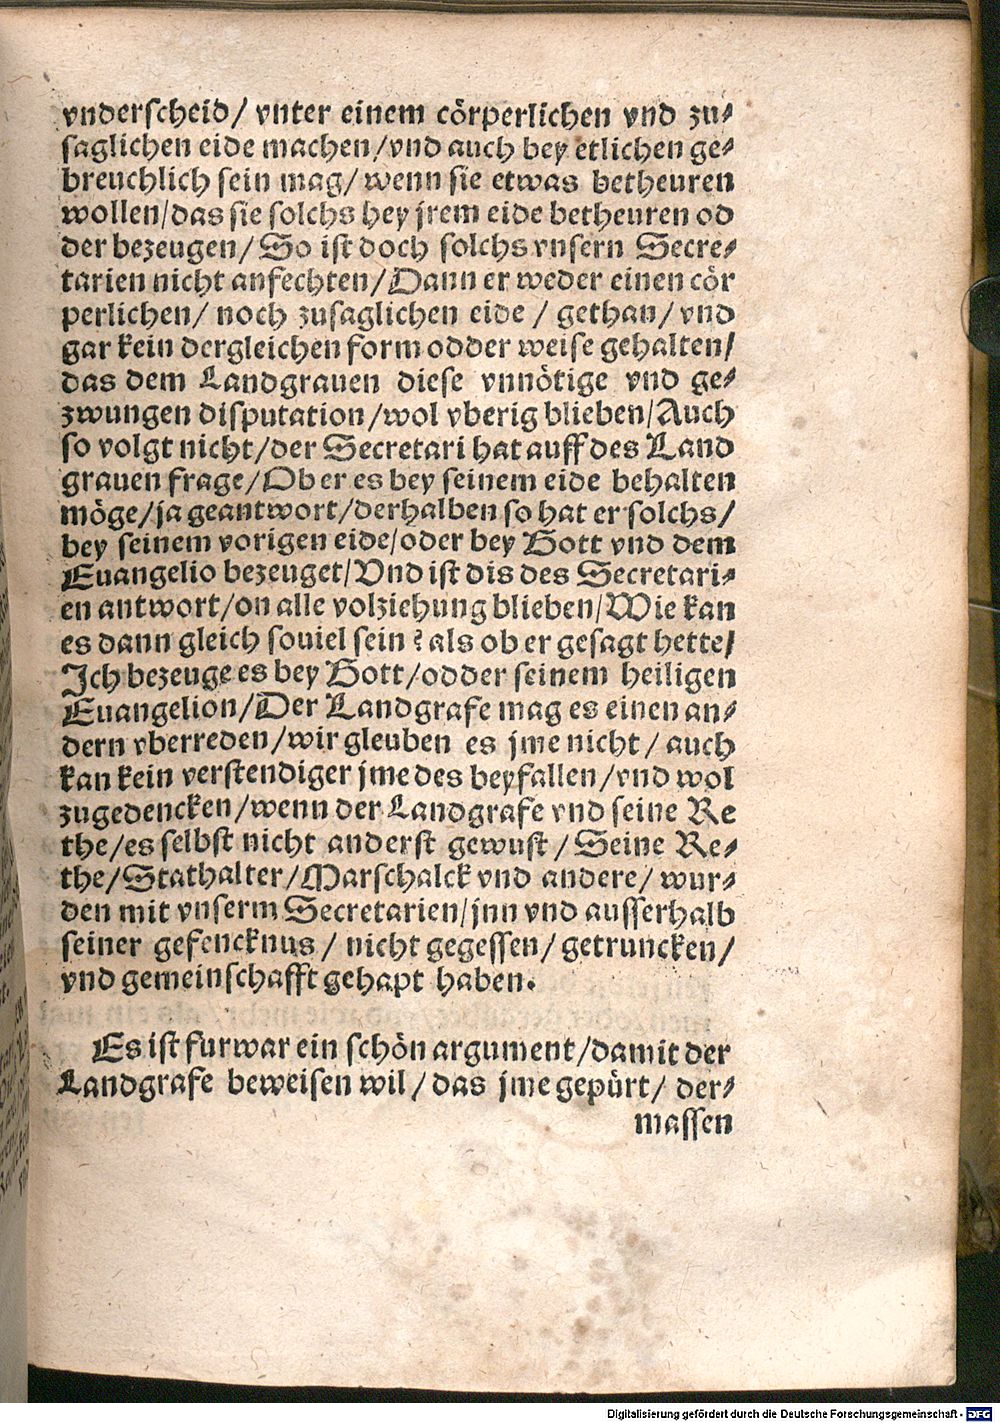 vnderscheid/ vnter einem cörperlichen vnd zu⸗
saglichen eide machen/vnd auch bey etlichen ge⸗
breuchlich sein mag/ wenn sie etwas betheuren
wollen/das sie solchs hey jrem eide betheuren od
der bezeugen/ So ist doch solchs vnsern Secre⸗
tarien nicht anfechten/ Dann er weder einen cör
perlichen/ noch zusaglichen eide / gethan/ vnd
gar kein dergleichen form odder weise gehalten/
das dem Landgrauen diese vnnötige vnd ge⸗
zwungen disputation/wol vberig blieben/Auch
so volgt nicht/der Secretari hat auff des Land
grauen frage/Ob er es bey seinem eide behalten
möge/ja geantwort/derhalben so hat er solchs/
bey seinem vorigen eide/oder bey Gott vnd dem
Euangelio bezeuget/Vnd ist dis des Secretari⸗
en antwort/on alle volziehung blieben/Wie kan
es dann gleich souiel sein? als ob er gesagt hette/
Ich bezeuge es bey Gott/odder seinem heiligen
Euangelion/Der Landgrafe mag es einen an⸗
dern vberreden/wir gleuben es jme nicht / auch
kan kein verstendiger jme des beyfallen/vnd wol
zugedencken/wenn der Landgrafe vnd seine Re
the/es selbst nicht anderst gewust / Seine Re⸗
the/Stathalter/Marschalck vnd andere/ wur⸗
den mit vnserm Secretarien/jnn vnd ausserhalb
seiner gefencknus / nicht gegessen/ getruncken/
vnd gemeinschafft gehapt haben.
Es ist furwar ein schön argument/damit der
Landgrafe beweisen wil/ das jme gepürt/ der⸗
massen
Digitalisierung gefördert durch die Deutsche Forschungsgemeinschaft - DFG